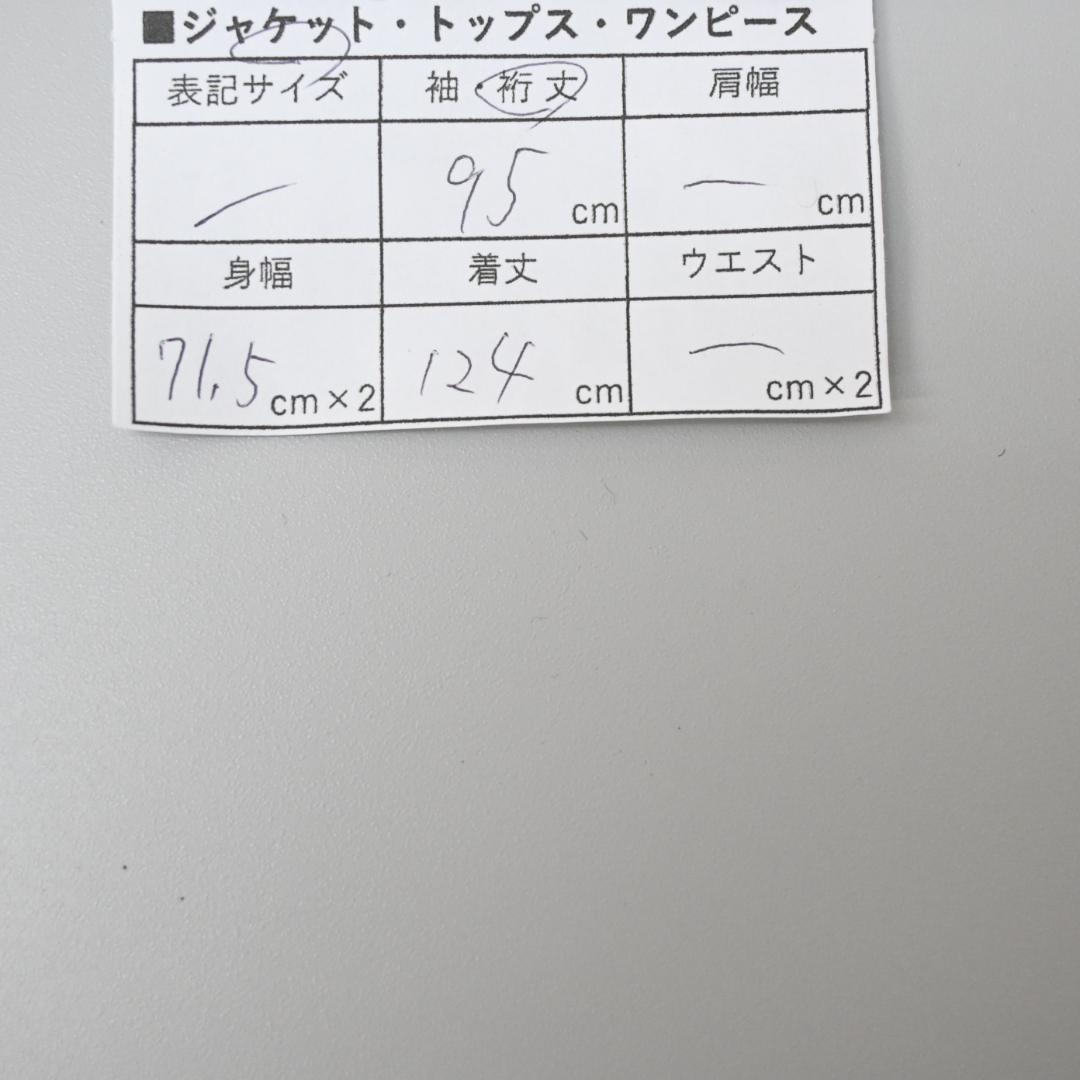 ■ジャケット・トップス・ワンピース
表記サイズ 袖・裄丈 肩幅
— 95 cm — cm
身幅 着丈 ウエスト
71.5 cm×2 124 cm — cm×2